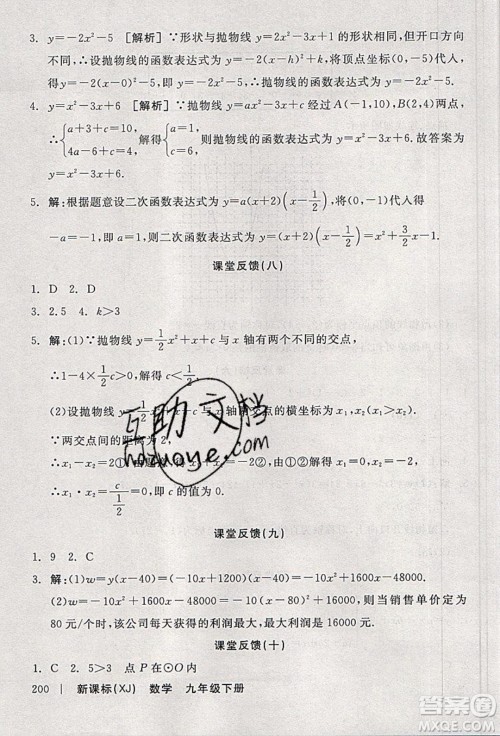 3. y=-2x²-5 [解析] ∵形状与抛物线 y=-2x²+1 的形状相同,但开口方
向相反,∴设抛物线的函数表达式为 y=-2x²+c,将坐标(0,-5)代入,
得 c=-5,即 y=-2x²-5,∴该抛物线的函数表达式为 y=-2x²-5.
4. y=x²-3x+6 [解析] ∵抛物线 y=ax²-3x+c 经过 A(-1,10),B(2,4)两点,
∴{a+3+c=10, 4a-6+c=4, 解得{a=1, c=6, 则抛物线的函数表达式为 y=x²-3x+6. 故答案为
y=x²-3x+6.
5. 解:根据题意设二次函数表达式为 y=a(x+1)(x-1/2),将(0,-1)代入得
-a=-1,即 a=2,则二次函数表达式为 y=2(x+1)(x-1/2)=x²+x-1.
课堂反馈(八)
1. D 2. D
3. 2.5 4. k>3
5. 解:(1)∵抛物线 y=1/2x²+x+c 与 x 轴有两个不同的交点,
∴1-4×1/2c>0,解得 c<1/2.
(2)设抛物线 y=1/2x²+x+c 与 x 轴两交点的横坐标为 x₁,x₂(x₁>x₂),
∵两交点间的距离为 2,
∴x₁-x₂=2①.由题意,得 x₁+x₂=-2②,由①②解得 x₁=0,x₂=-2,
∴x₁·x₂=c/(1/2)=0,即 c 的值为 0.
课堂反馈(九)
1. 9 2. C
3. 解:(1)w=y(x-40)=(-10x+1200)(x-40)=-10x²+1600x-48000.
(2)w=-10x²+1600x-48000=-10(x-80)²+16000,则当销售单价定为
80 元/个时,该公司每天获得的利润最大,最大利润是 16000 元.
课堂反馈(十)
1. C 2. 5>3 点 P 在⊙O 内
200 | 新课标(XJ) 数学 九年级下册
互助文档
hazuoye.com